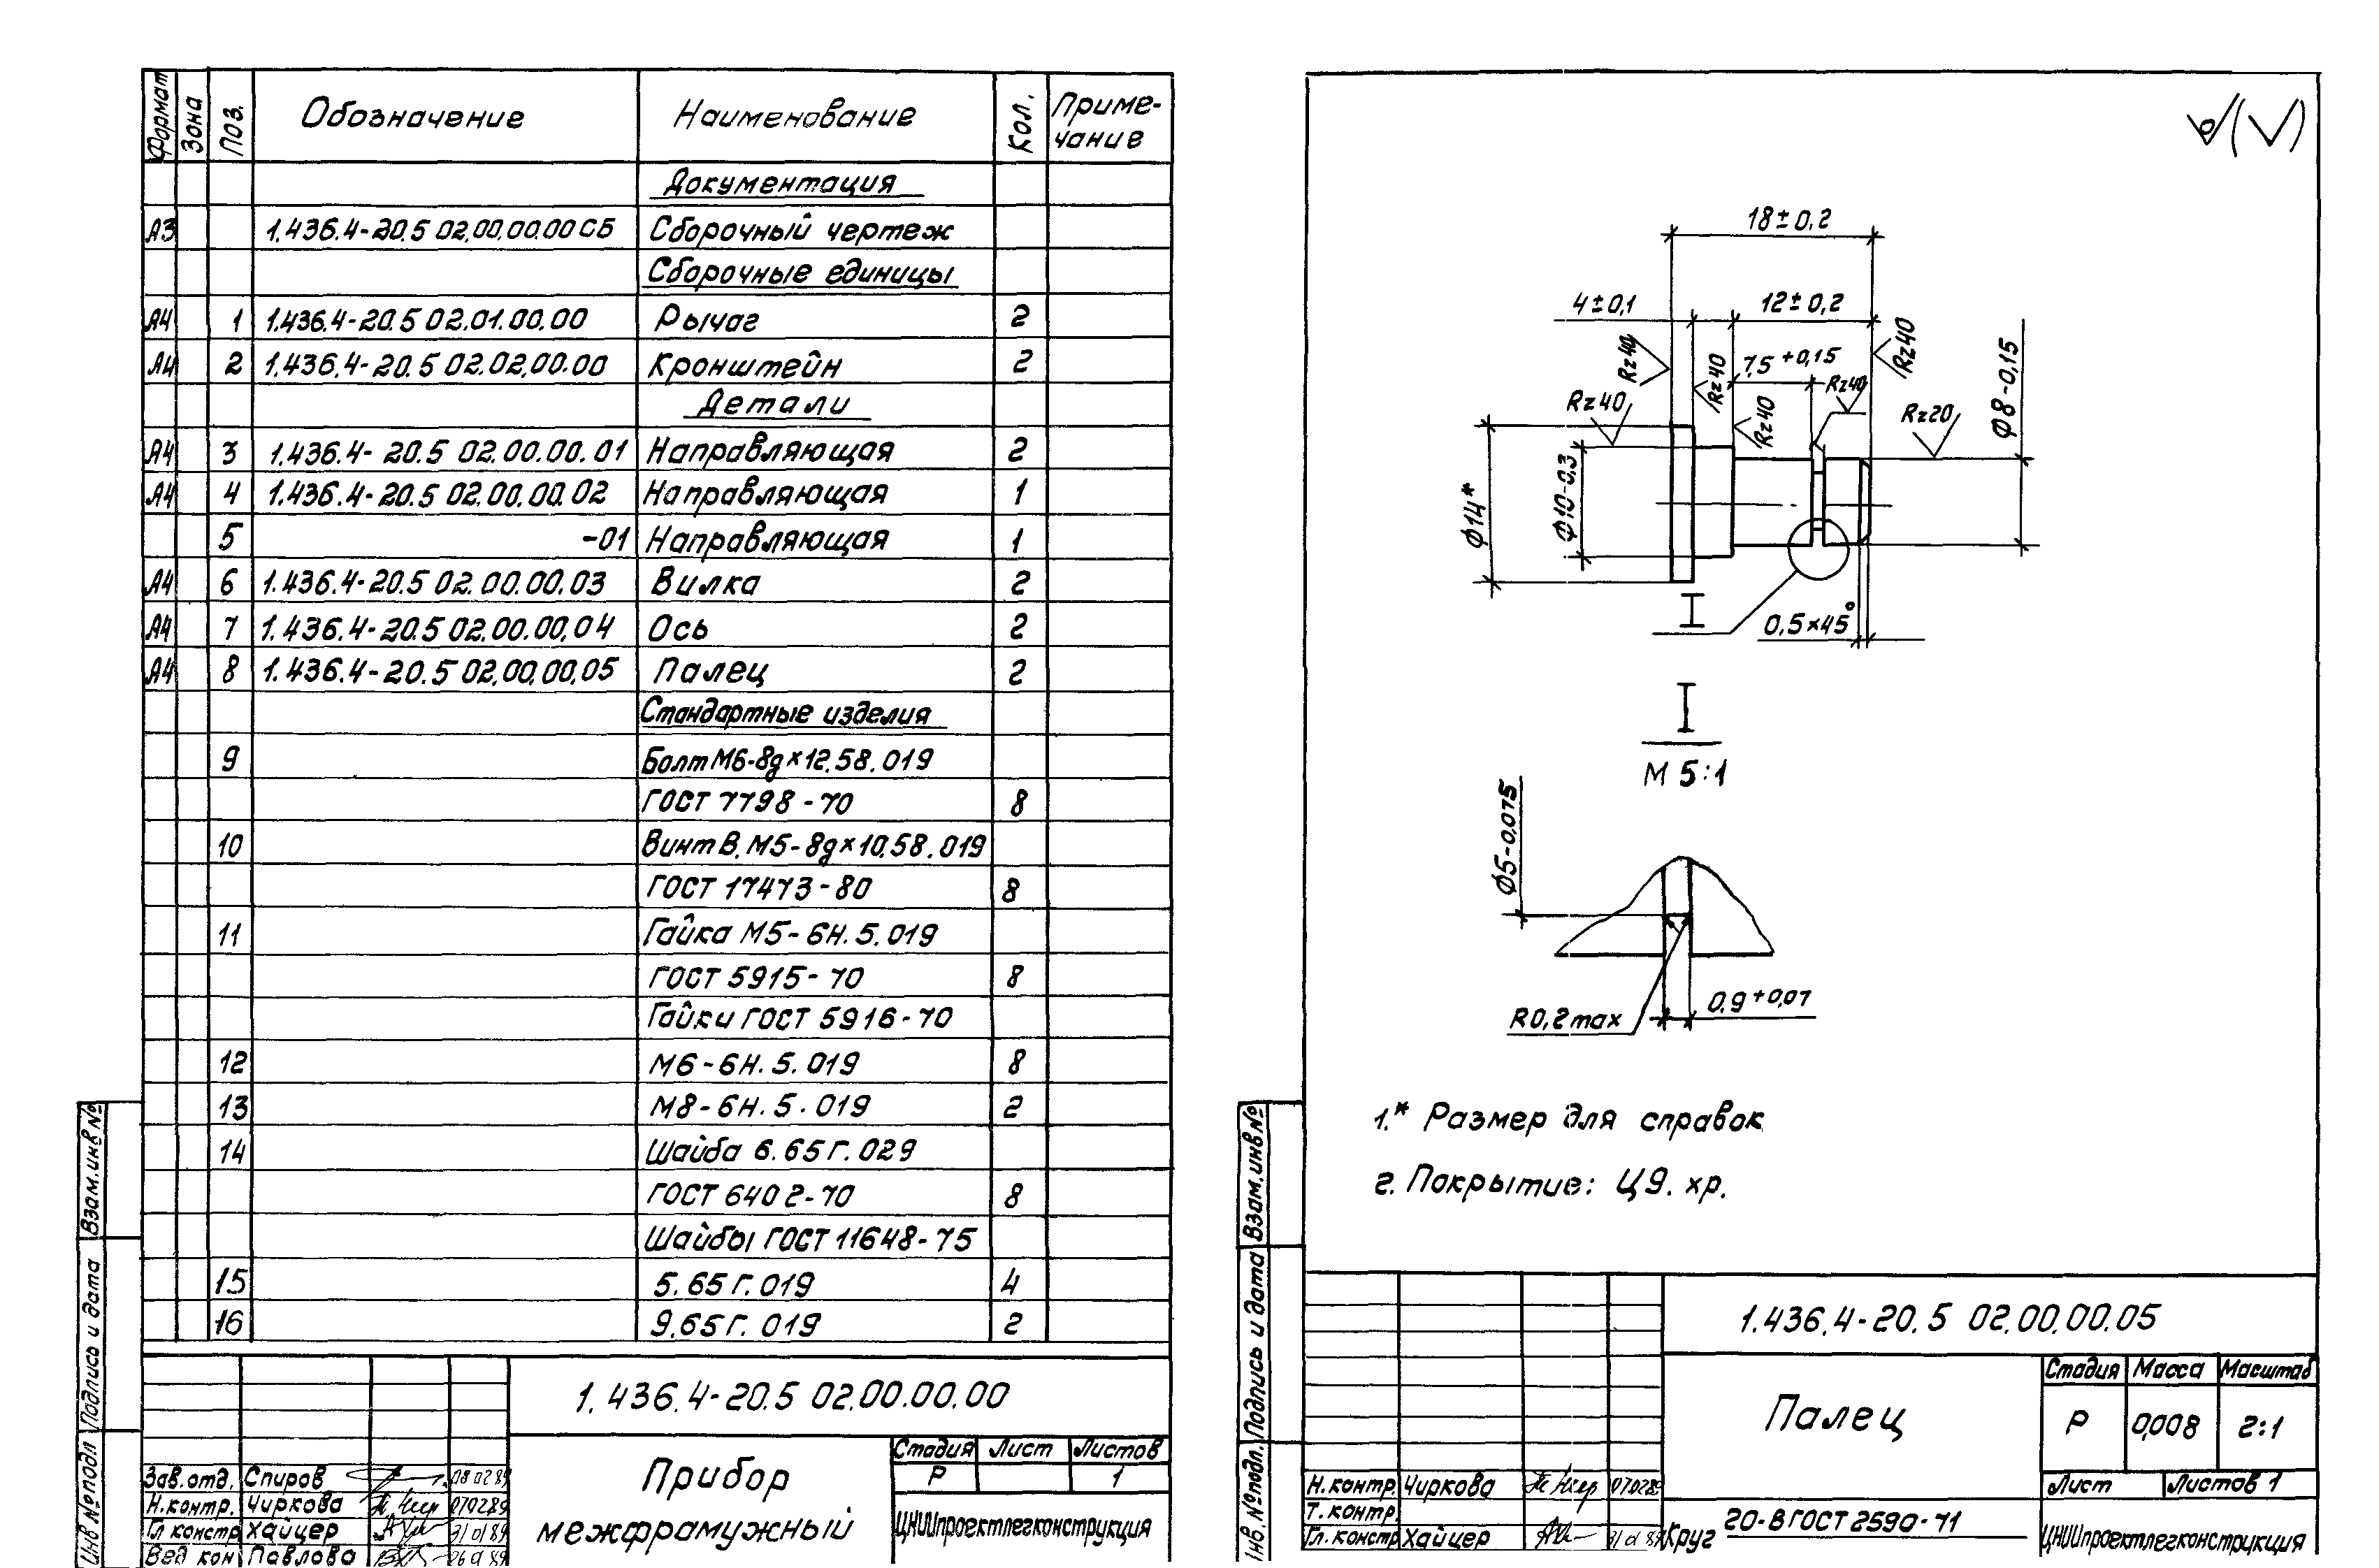 Формат Зона Поз. Обозначение Наименование Кол. Приме-
чание
Документация
А3 1.436.4-20.5 02.00.00.00СБ Сборочный чертеж
Сборочные единицы
А4 1 1.436.4-20.5 02.01.00.00 Рычаг 2
А4 2 1.436.4-20.5 02.02.00.00 Кронштейн 2
Детали
А4 3 1.436.4-20.5 02.00.00.01 Направляющая 2
А4 4 1.436.4-20.5 02.00.00.02 Направляющая 1
5 -01 Направляющая 1
А4 6 1.436.4-20.5 02.00.00.03 Вилка 2
А4 7 1.436.4-20.5 02.00.00.04 Ось 2
А4 8 1.436.4-20.5 02.00.00.05 Палец 2
Стандартные изделия
9 Болт М6-8g×12.58.019
ГОСТ 7798-70 8
10 Винт В.М5-8g×10.58.019
ГОСТ 17473-80 8
11 Гайка М5-6Н.5.019
ГОСТ 5915-70 8
Гайки ГОСТ 5916-70
12 М6-6Н.5.019 8
13 М8-6Н.5.019 2
14 Шайба 6.65Г.029
ГОСТ 6402-70 8
Шайбы ГОСТ 11648-75
15 5.65Г.019 4
16 9.65Г.019 2
1.436.4-20.5 02.00.00.00
Прибор
межфрамужный
Стадия Лист Листов
Р 1
ЦНИИпроектлегконструкция
Зав.отд. Спиров 08 02 89
Н.контр. Чиркова 07 02 89
Гл констр Хайцер 31 01 89
Вед кон Павлова
Инв №подл Подпись и дата Взам.инв№
18±0,2
4±0,1 12±0,2
7,5 +0,15
Rz40
Rz40
Rz40
Rz40
Rz40
Rz40
Rz20
Ф8-0,15
Ф14*
Ф10-0,3
I
0,5×45°
I
М 5:1
Ф5-0,075
R0,2max
0,9+0,07
1.* Размер для справок
2. Покрытие: Ц9.хр.
Инв.№подл. Подпись и дата Взам.инв№
1.436.4-20.5 02.00.00.05
Палец
Стадия Масса Масштаб
Р 0,008 2:1
Лист Листов 1
Н.контр. Чиркова 07 02 89
Т.контр.
Гл.констр Хайцер 31 01 89
Круг 20-В ГОСТ 2590-71
ЦНИИпроектлегконструкция